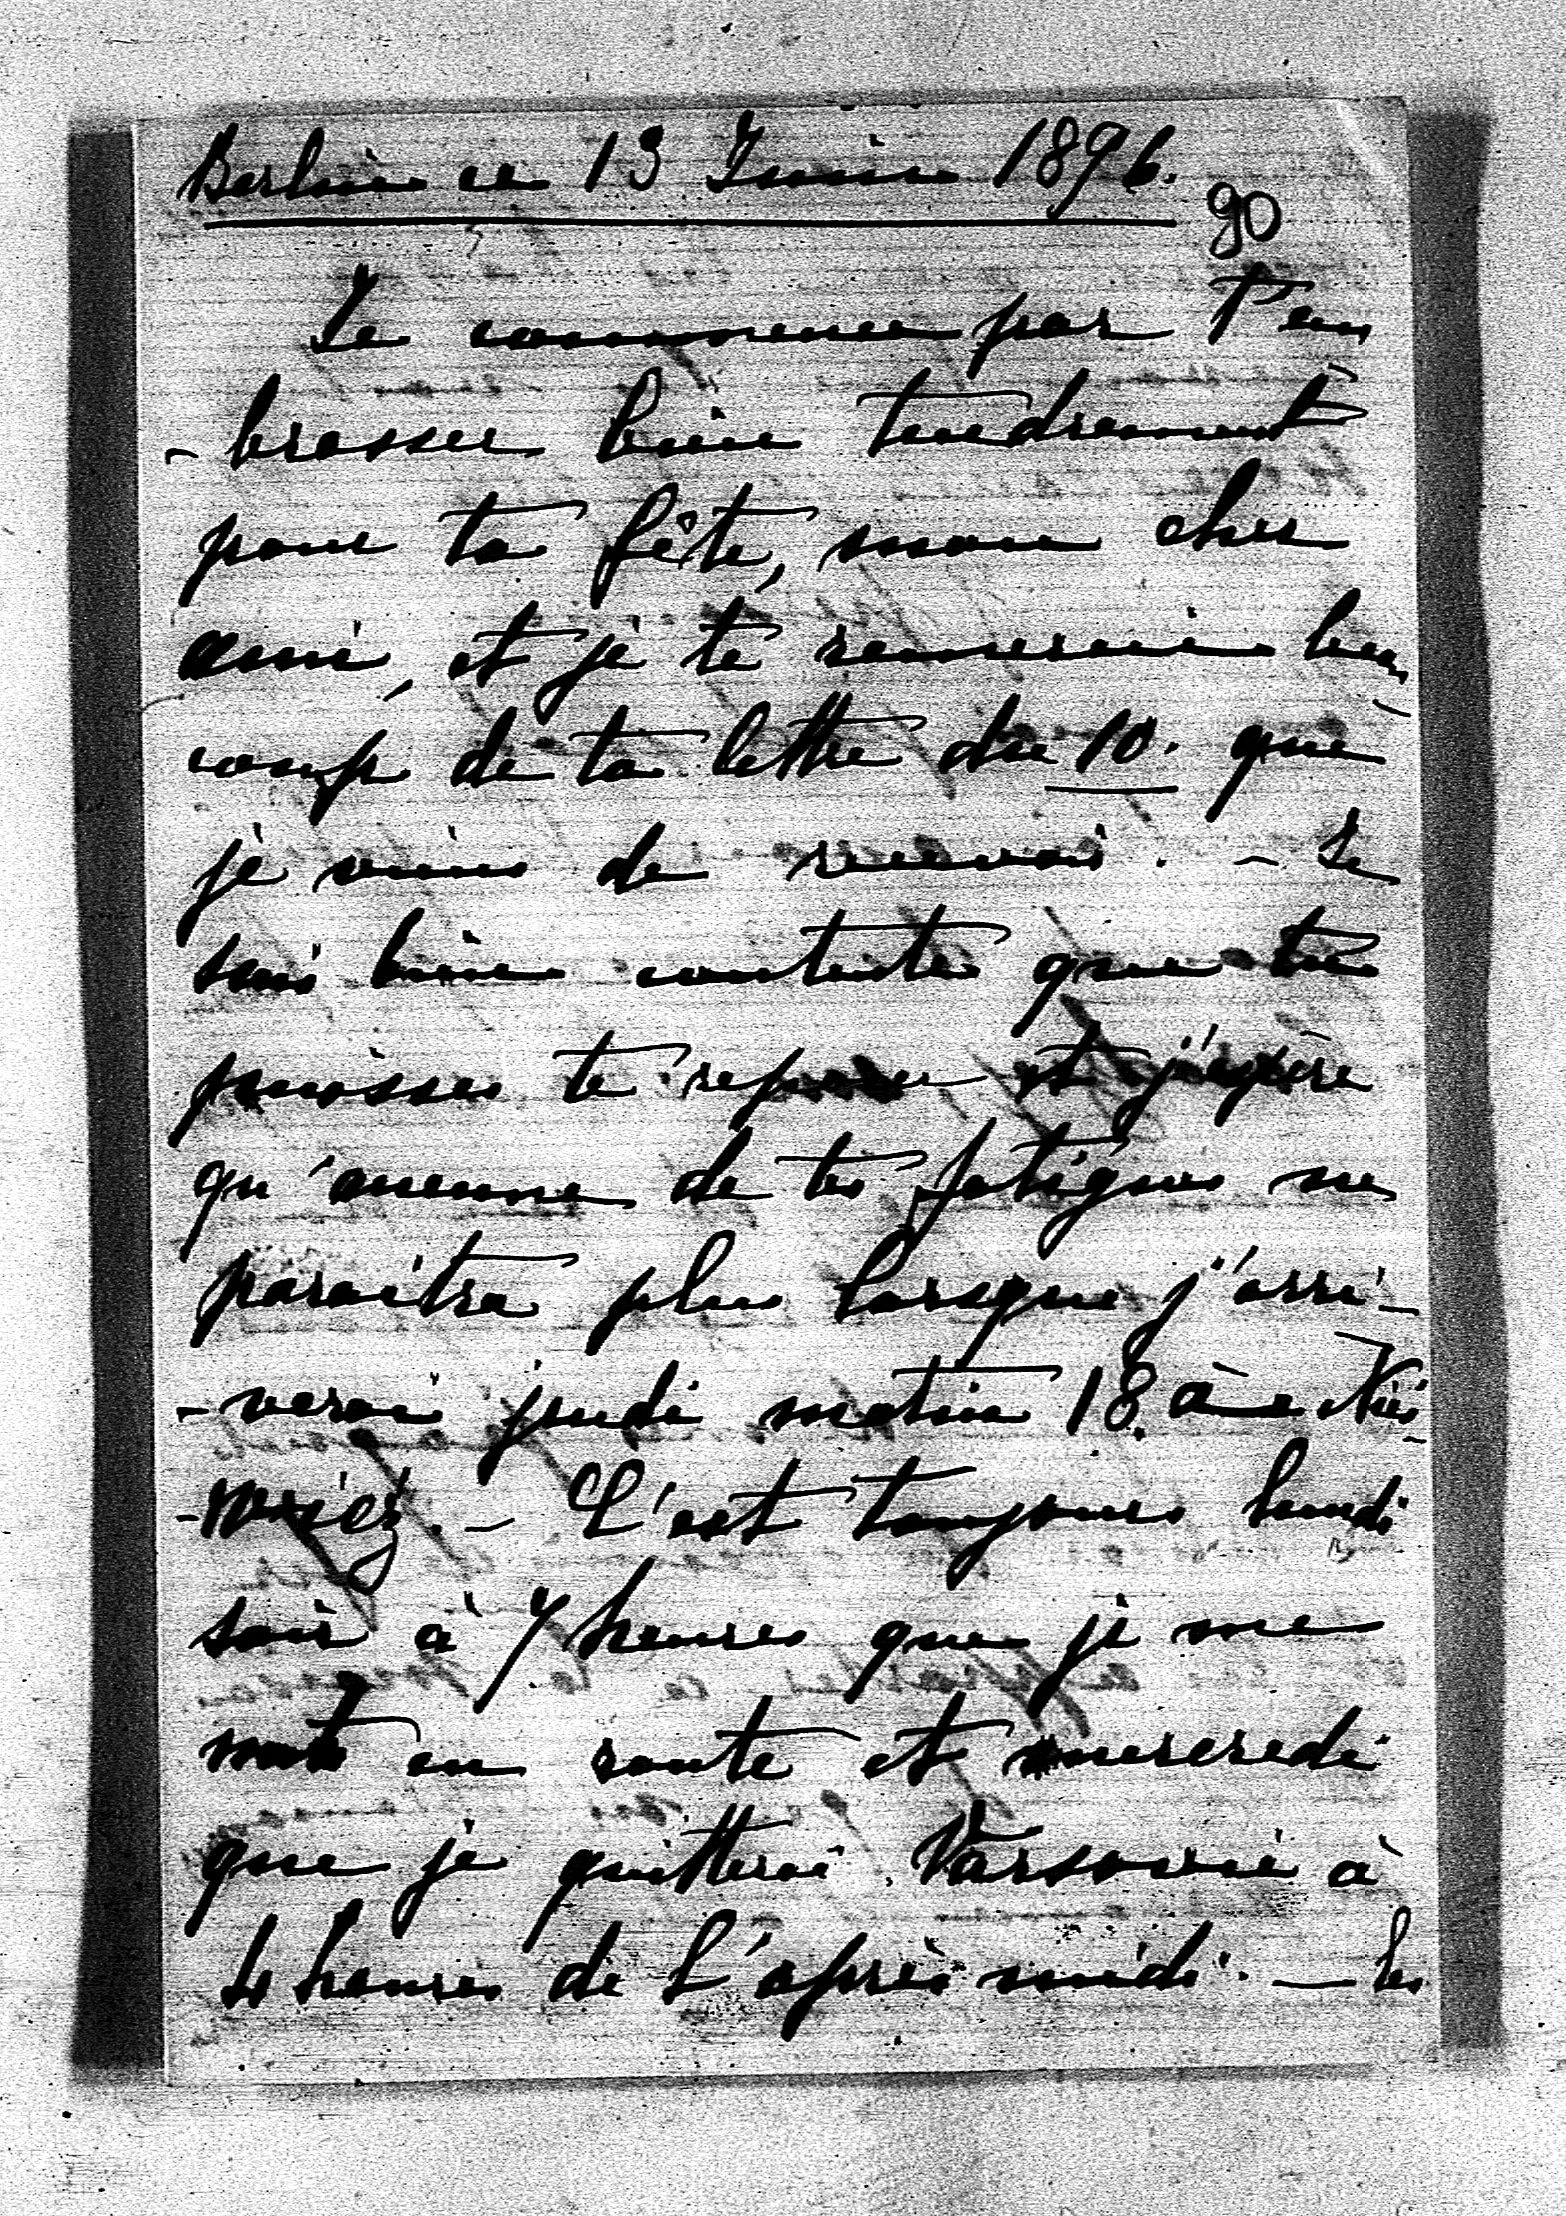 Berlin ce 13 Juin 1896.
90
Je commence par t'em
-brasser bien tendrement
pour ta fête, mon cher
ami, et je te remercie beau
coup de ta lettre du 10. que
je viens de recevoir. - Je
suis bien contente que tu
puisses te reposer et j'espère
qu'aucune de tes fatigues ne
paraîtra plus lorsque j'arri-
-verai jeudi matin 18. à Nies
-wież. - C'est toujours lundi
soir à 7 heures que je me
mets en route et mercredi
que je quitterai Varsovie à
4 heures de l'après midi. - Les